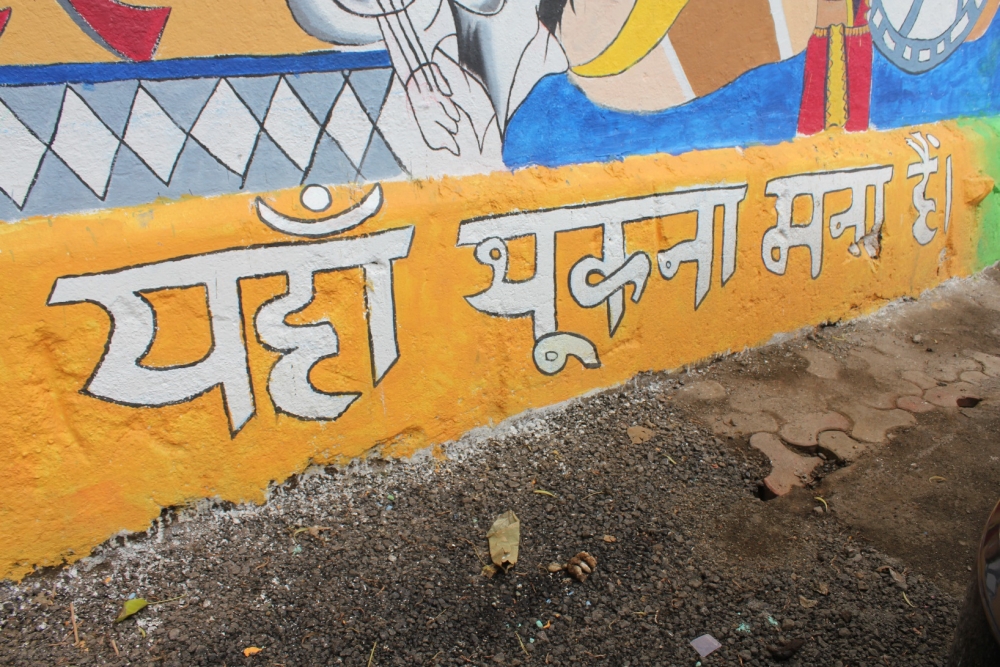 यहाँ थूकना मना हैं।